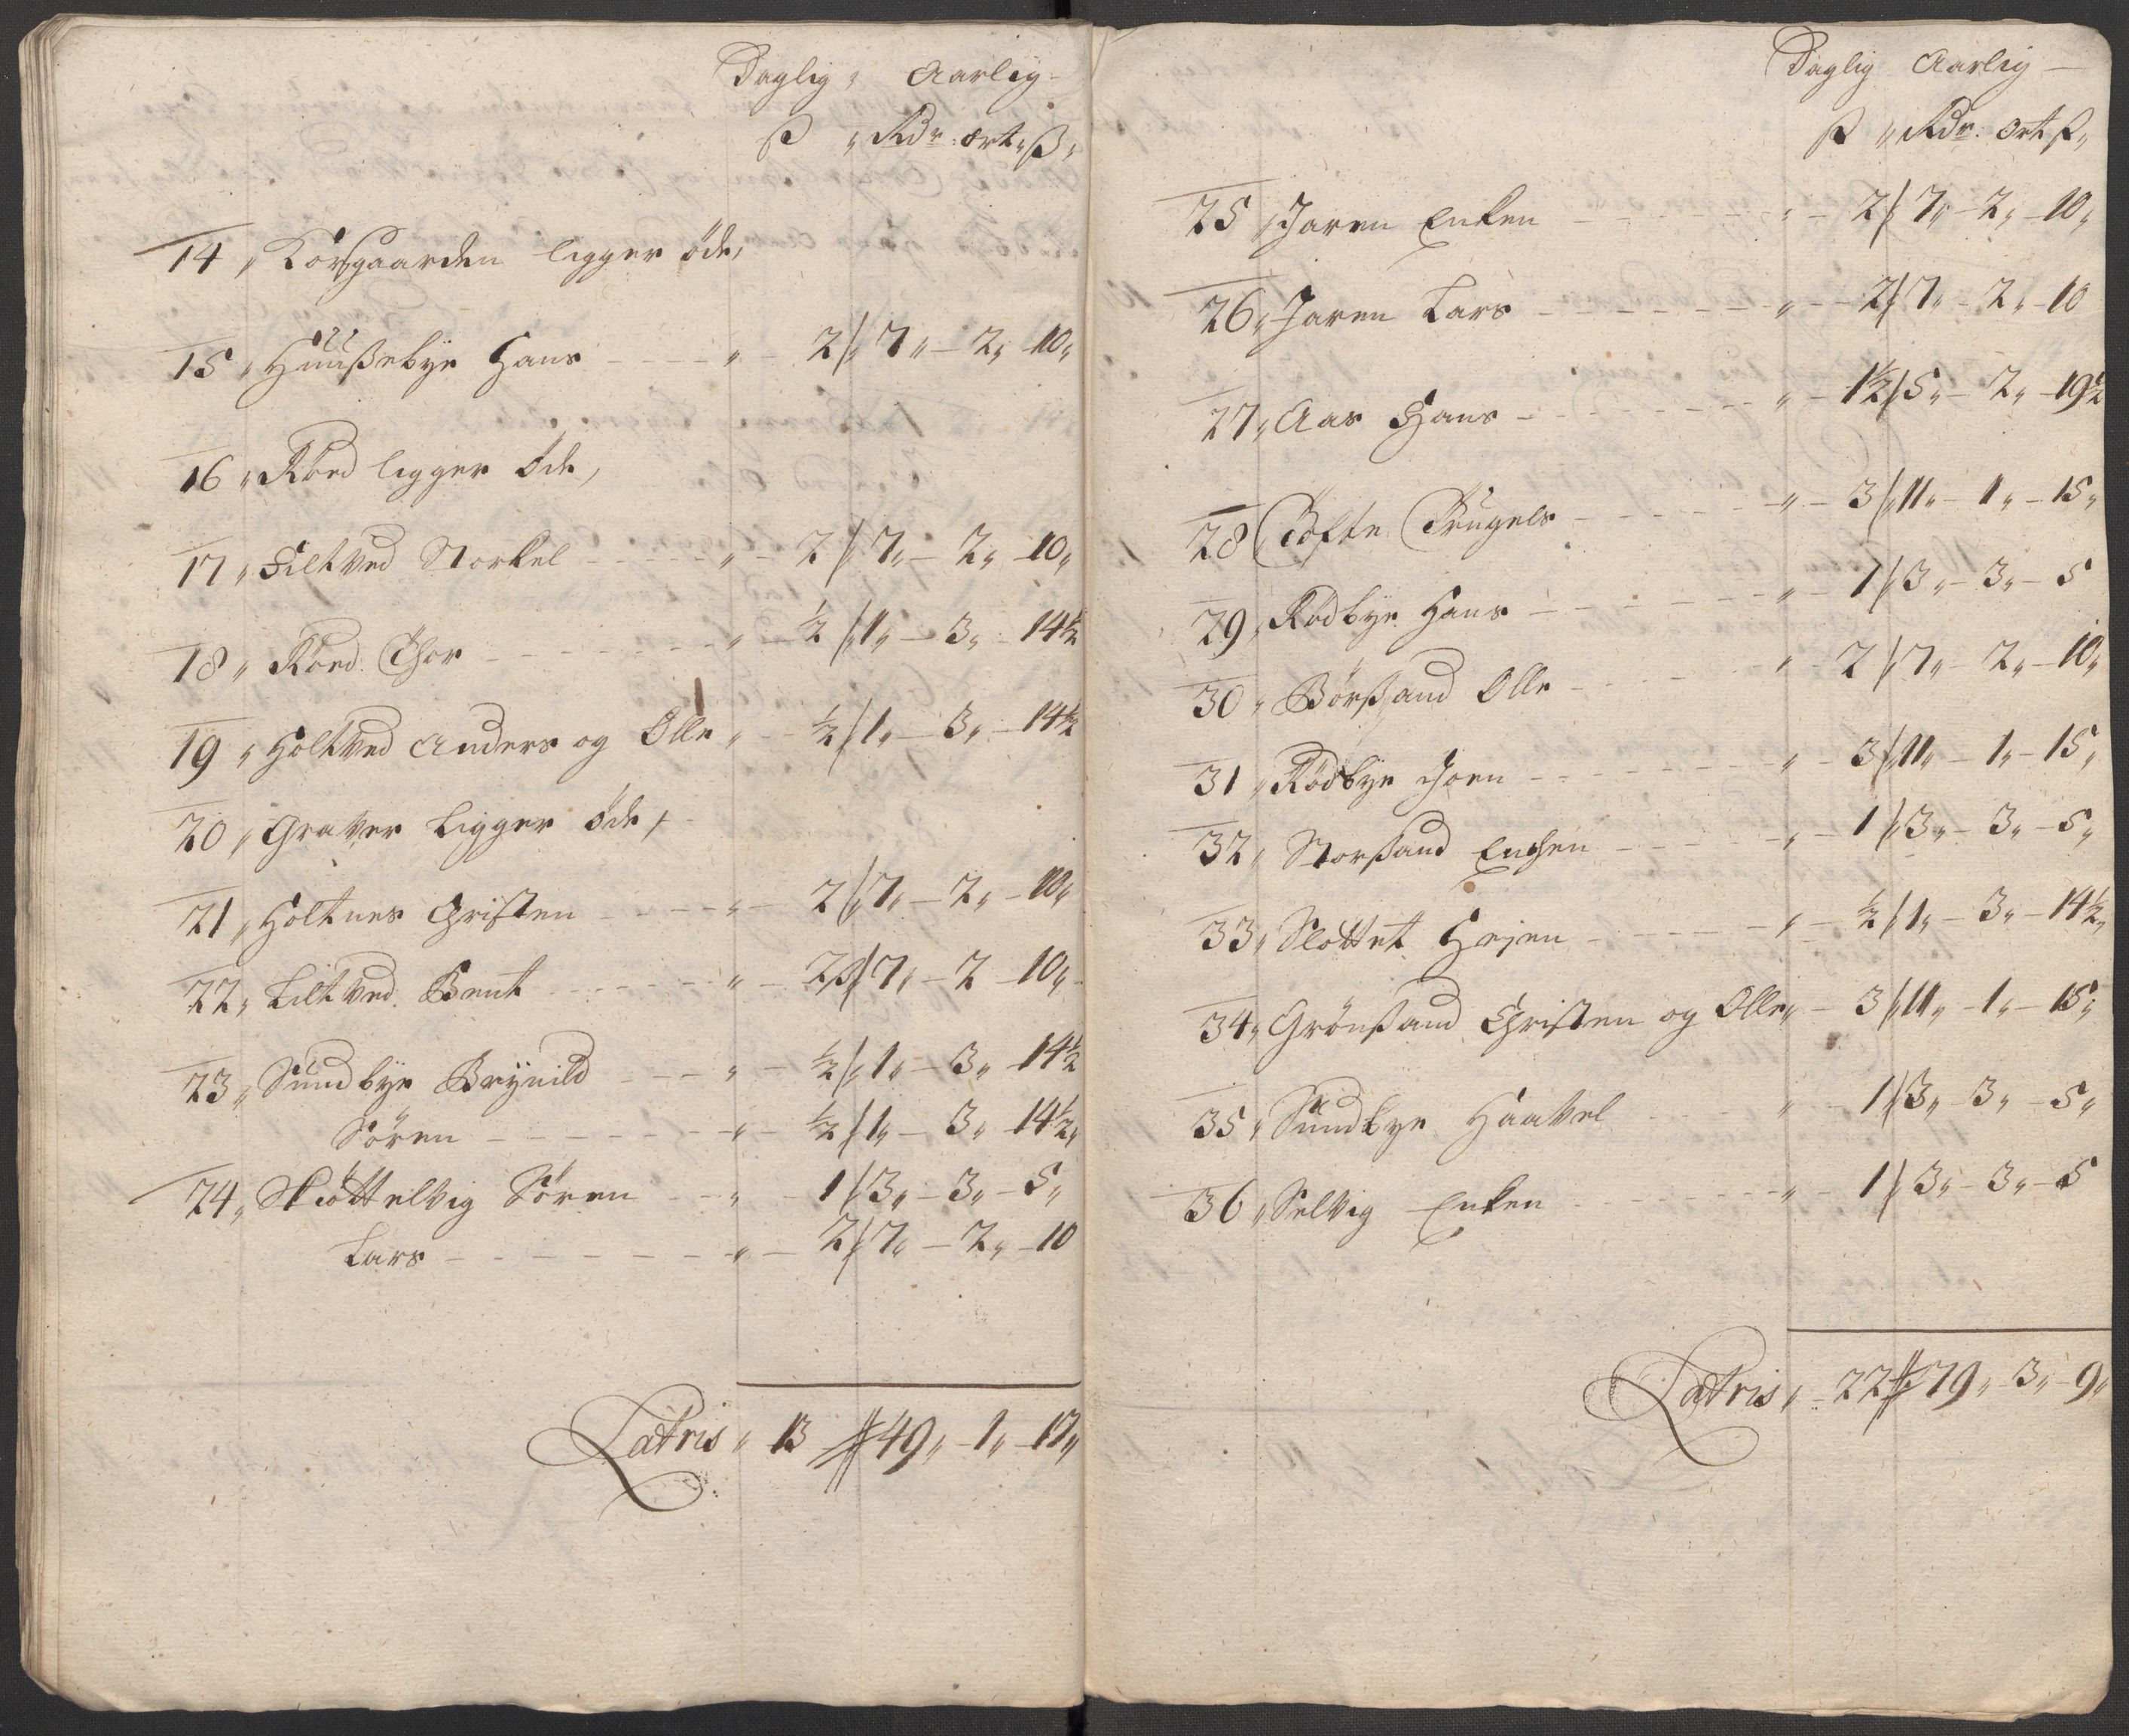 Daglig „ Aarlig
ß „ Rdr. ort „ ß „
14 „ Korsgaarden ligger öde,
15 „ Huußebye Hans — „ 2 /„ 7 „ — 2 „ — 10 „
16 „ Röed ligger öde,
17 „ Filtved Storkel — „ — 2 /„ 7 „ — 2 „ — 10 „
18 „ Röed Thor — „ — ½ /„ 1 „ — 3 „ — 14½
19 „ Holtved Anders og Olle „ — ½ / 1 „ — 3 „ — 14½
20 „ Graver ligger öde,
21 „ Holtnes Christen — „ — 2 /„ 7 „ — 2 „ — 10 „
22 „ Liltved Bent — „ — 2 ß/ 7 „ — 2 — 10 „
23 „ Sundbye Brynild — „ — ½ /„ 1 „ — 3 „ — 14½
Sören — „ — ½ / 1 „ — 3 „ — 14½ „
24 „ Skiöttelvig Sören — „ — 1 / 3 „ — 3 „ — 5 „
Lars — „ — 2 /„ 7 „ — 2 „ — 10
Latris „ 13 // 49 „ — 1 „ — 17 „
Daglig Aarlig —
ß „ Rdr. ort ß „
25 „ Jaren Enken — „ — 2 / 7 „ — 2 „ — 10 „
26 „ Jaren Lars — „ — 2 / 7 „ — 2 „ — 10
27 „ Aas Hans — „ — 1½ / 5 „ — 2 „ — 19½
28 „ Tofte Trugels — „ — 3 /„ 11 „ — 1 „ — 15 „
29 „ Rödbye Hans — „ — 1 /„ 3 „ — 3 „ — 5
30 „ Börßand Olle — „ — 2 /„ 7 „ — 2 „ — 10 „
31 „ Rödbye Joen — „ — 3 /„ 11 „ — 1 „ — 15 „
32 „ Storßand Enchen — „ — 1 /„ 3 „ — 3 „ — 5 „
33 „ Slottet Hejen — „ — ½ / 1 „ — 3 „ — 14½ „
34 „ Grönßand Christen og Olle „ — 3 /„ 11 „ — 1 „ — 15 „
35 „ Sundbye Haavel — „ — 1 /„ 3 „ — 3 „ — 5 „
36 „ Selvig Enken — „ — 1 / 3 „ — 3 „ — 5
Latris „ — 22 // 79 „ — 3 „ — 9 „